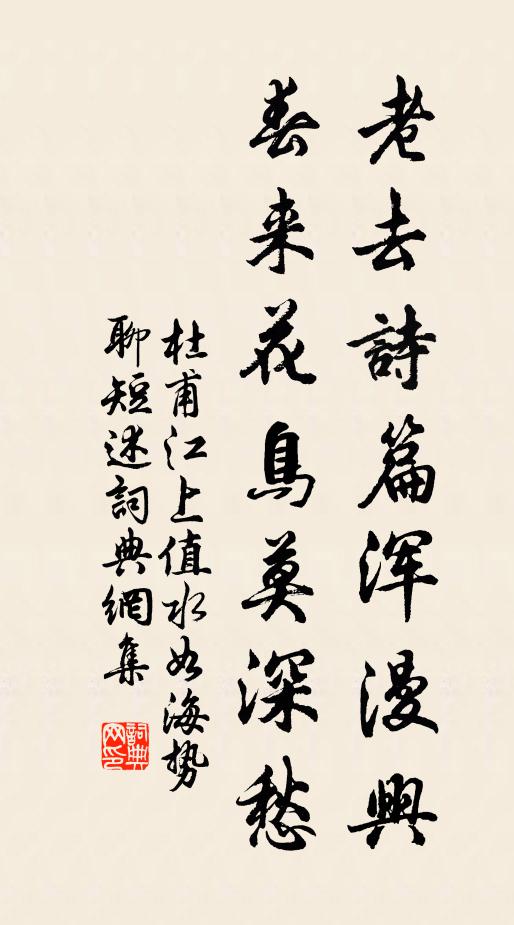 老去詩篇浑漫興
春来花鳥莫深愁
杜甫江上值水如海势
聊短述詞典網集
詞典
网印